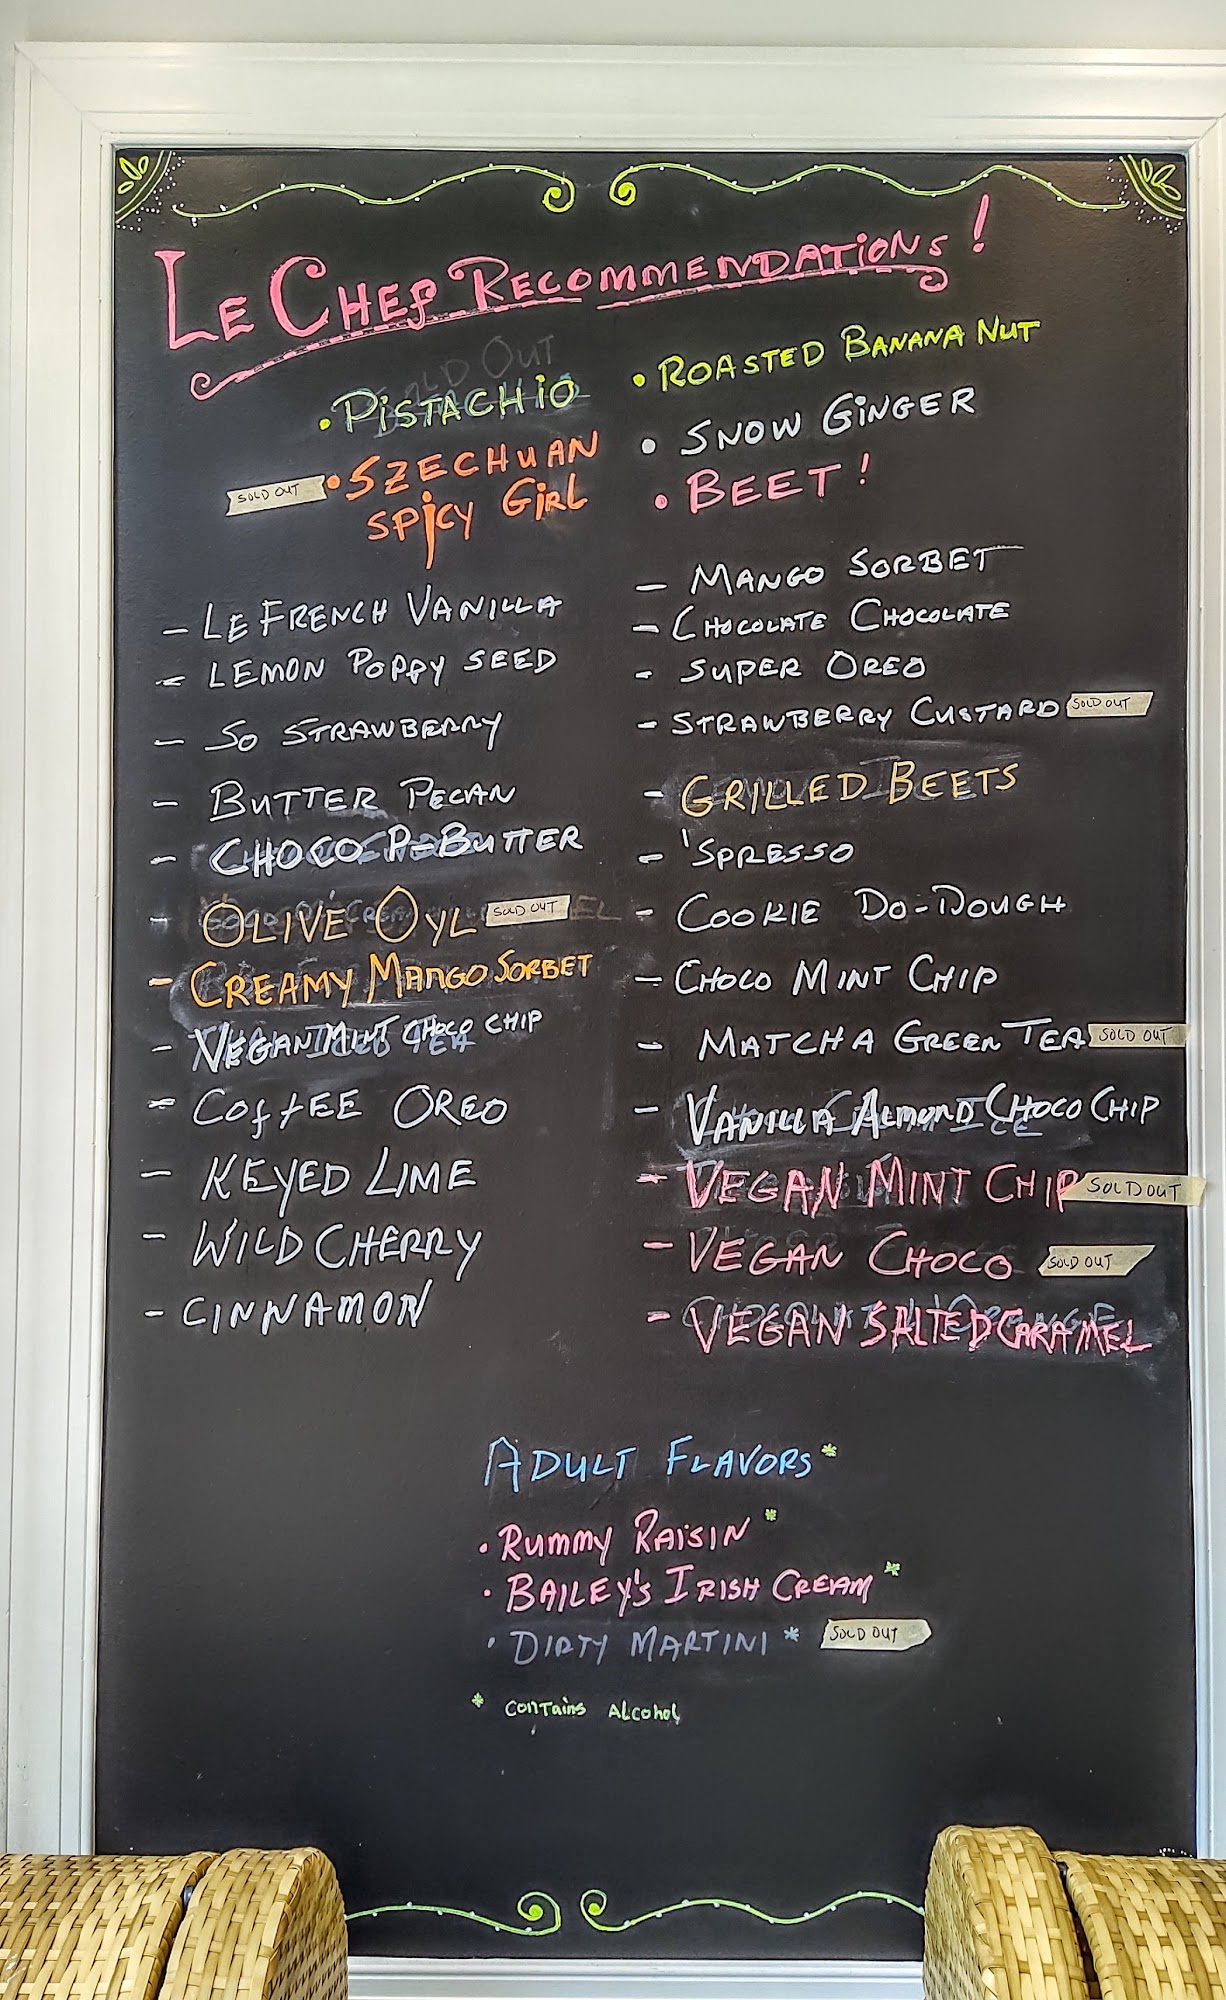 Le Chef Recommendations!
• Pistachio
SOLD OUT • Szechuan
Spicy Girl
• Roasted Banana Nut
• Snow Ginger
• Beet!
- Le French Vanilla
- Lemon Poppy Seed
- So Strawberry
- Butter Pecan
- Choco P-Butter
- Olive Oyl SOLD OUT
- Creamy Mango Sorbet
- Vegan Mint Choco Chip
- Coffee Oreo
- Keyed Lime
- Wild Cherry
- Cinnamon
- Mango Sorbet
- Chocolate Chocolate
- Super Oreo
- Strawberry Custard SOLD OUT
- Grilled Beets
- 'Spresso
- Cookie Do-Dough
- Choco Mint Chip
- Matcha Green Tea SOLD OUT
- Vanilla Almond Choco Chip
- Vegan Mint Chip SOLD OUT
- Vegan Choco SOLD OUT
- Vegan Salted Caramel
Adult Flavors*
• Rummy Raisin *
• Bailey's Irish Cream *
• Dirty Martini * SOLD OUT
* Contains Alcohol